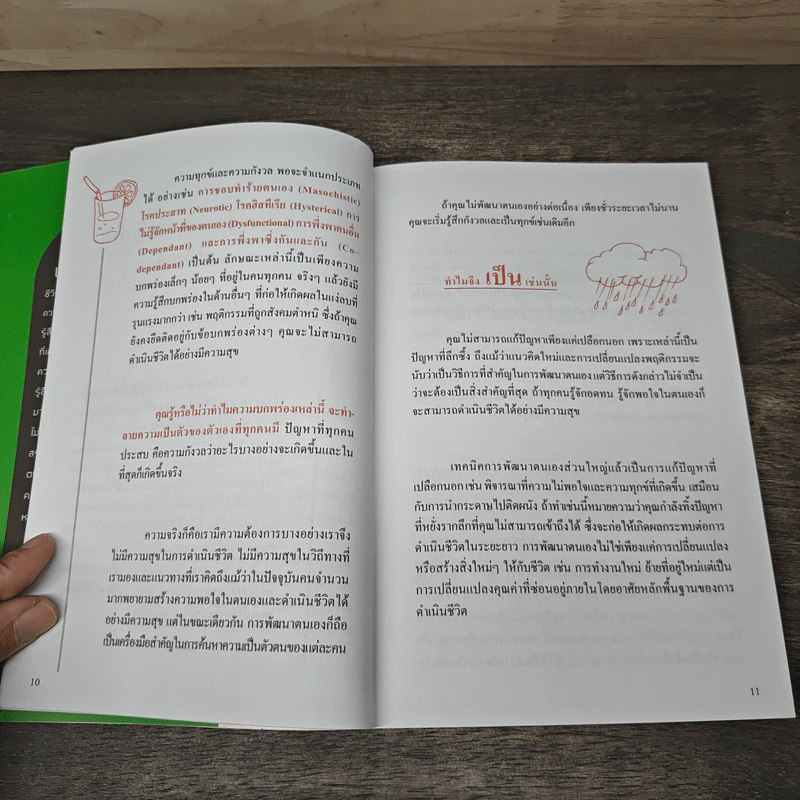 ความทุกข์และความกังวล พอจะจำแนกประเภท
ได้ อย่างเช่น การชอบทำร้ายตนเอง (Masochistic)
โรคประสาท (Neurotic) โรคฮิสทีเรีย (Hysterical) การ
ไม่รู้จักหน้าที่ของตนเอง (Dysfunctional) การพึ่งพาคนอื่น
(Dependant) และการพึ่งพาซึ่งกันและกัน (Co-
dependant) เป็นต้น ลักษณะเหล่านี้เป็นเพียงความ
บกพร่องเล็กๆ น้อยๆ ที่อยู่ในคนทุกคน จริงๆ แล้วยังมี
ความรู้สึกบกพร่องในด้านอื่นๆ ที่ก่อให้เกิดผลในแง่ลบที่
รุนแรงมากกว่า เช่น พฤติกรรมที่ถูกสังคมตำหนิ ซึ่งถ้าคุณ
ยังคงยึดติดอยู่กับข้อบกพร่องต่างๆ คุณจะไม่สามารถ
ดำเนินชีวิตได้อย่างมีความสุข
คุณรู้หรือไม่ว่าทำไมความบกพร่องเหล่านี้ จะทำ-
ลายความเป็นตัวของตัวเองที่ทุกคนมี ปัญหาที่ทุกคน
ประสบ คือความกังวลว่าอะไรบางอย่างจะเกิดขึ้นและใน
ที่สุดก็เกิดขึ้นจริง
ความจริงก็คือเรามีความต้องการบางอย่างเราจึง
ไม่มีความสุขในการดำเนินชีวิต ไม่มีความสุขในวิถีทางที่
เรามองและแนวทางที่เราคิดถึงแม้ว่าในปัจจุบันคนจำนวน
มากพยายามสร้างความพอใจในตนเองและดำเนินชีวิตได้
อย่างมีความสุข แต่ในขณะเดียวกัน การพัฒนาตนเองก็ถือ
เป็นเครื่องมือสำคัญในการค้นหาความเป็นตัวตนของแต่ละคน
10
ถ้าคุณไม่พัฒนาตนเองอย่างต่อเนื่อง เพียงชั่วระยะเวลาไม่นาน
คุณจะเริ่มรู้สึกกังวลและเป็นทุกข์เช่นเดิมอีก
ทำไมจึง เป็น เช่นนั้น
คุณไม่สามารถแก้ปัญหาเพียงแค่เปลือกนอก เพราะเหล่านี้เป็น
ปัญหาที่ลึกซึ้ง ถึงแม้ว่าแนวคิดใหม่และการเปลี่ยนแปลงพฤติกรรมจะ
นับว่าเป็นวิธีการที่สำคัญในการพัฒนาตนเอง แต่วิธีการดังกล่าวไม่จำเป็น
ว่าจะต้องเป็นสิ่งสำคัญที่สุด ถ้าทุกคนรู้จักอดทน รู้จักพอใจในตนเองก็
จะสามารถดำเนินชีวิตได้อย่างมีความสุข
เทคนิคการพัฒนาตนเองส่วนใหญ่แล้วเป็นการแก้ปัญหาที่
เปลือกนอก เช่น พิจารณาที่ความไม่พอใจและความทุกข์ที่เกิดขึ้น เสมือน
กับการนำกระดาษไปติดผนัง ถ้าทำเช่นนี้หมายความว่าคุณกำลังทิ้งปัญหา
ที่หยั่งรากลึกที่คุณไม่สามารถเข้าถึงได้ ซึ่งจะก่อให้เกิดผลกระทบต่อการ
ดำเนินชีวิตในระยะยาว การพัฒนาตนเองไม่ใช่เพียงแค่การเปลี่ยนแปลง
หรือสร้างสิ่งใหม่ๆ ให้กับชีวิต เช่น การทำงานใหม่ ย้ายที่อยู่ใหม่แต่เป็น
การเปลี่ยนแปลงคุณค่าที่ซ่อนอยู่ภายในโดยอาศัยหลักพื้นฐานของการ
ดำเนินชีวิต
11